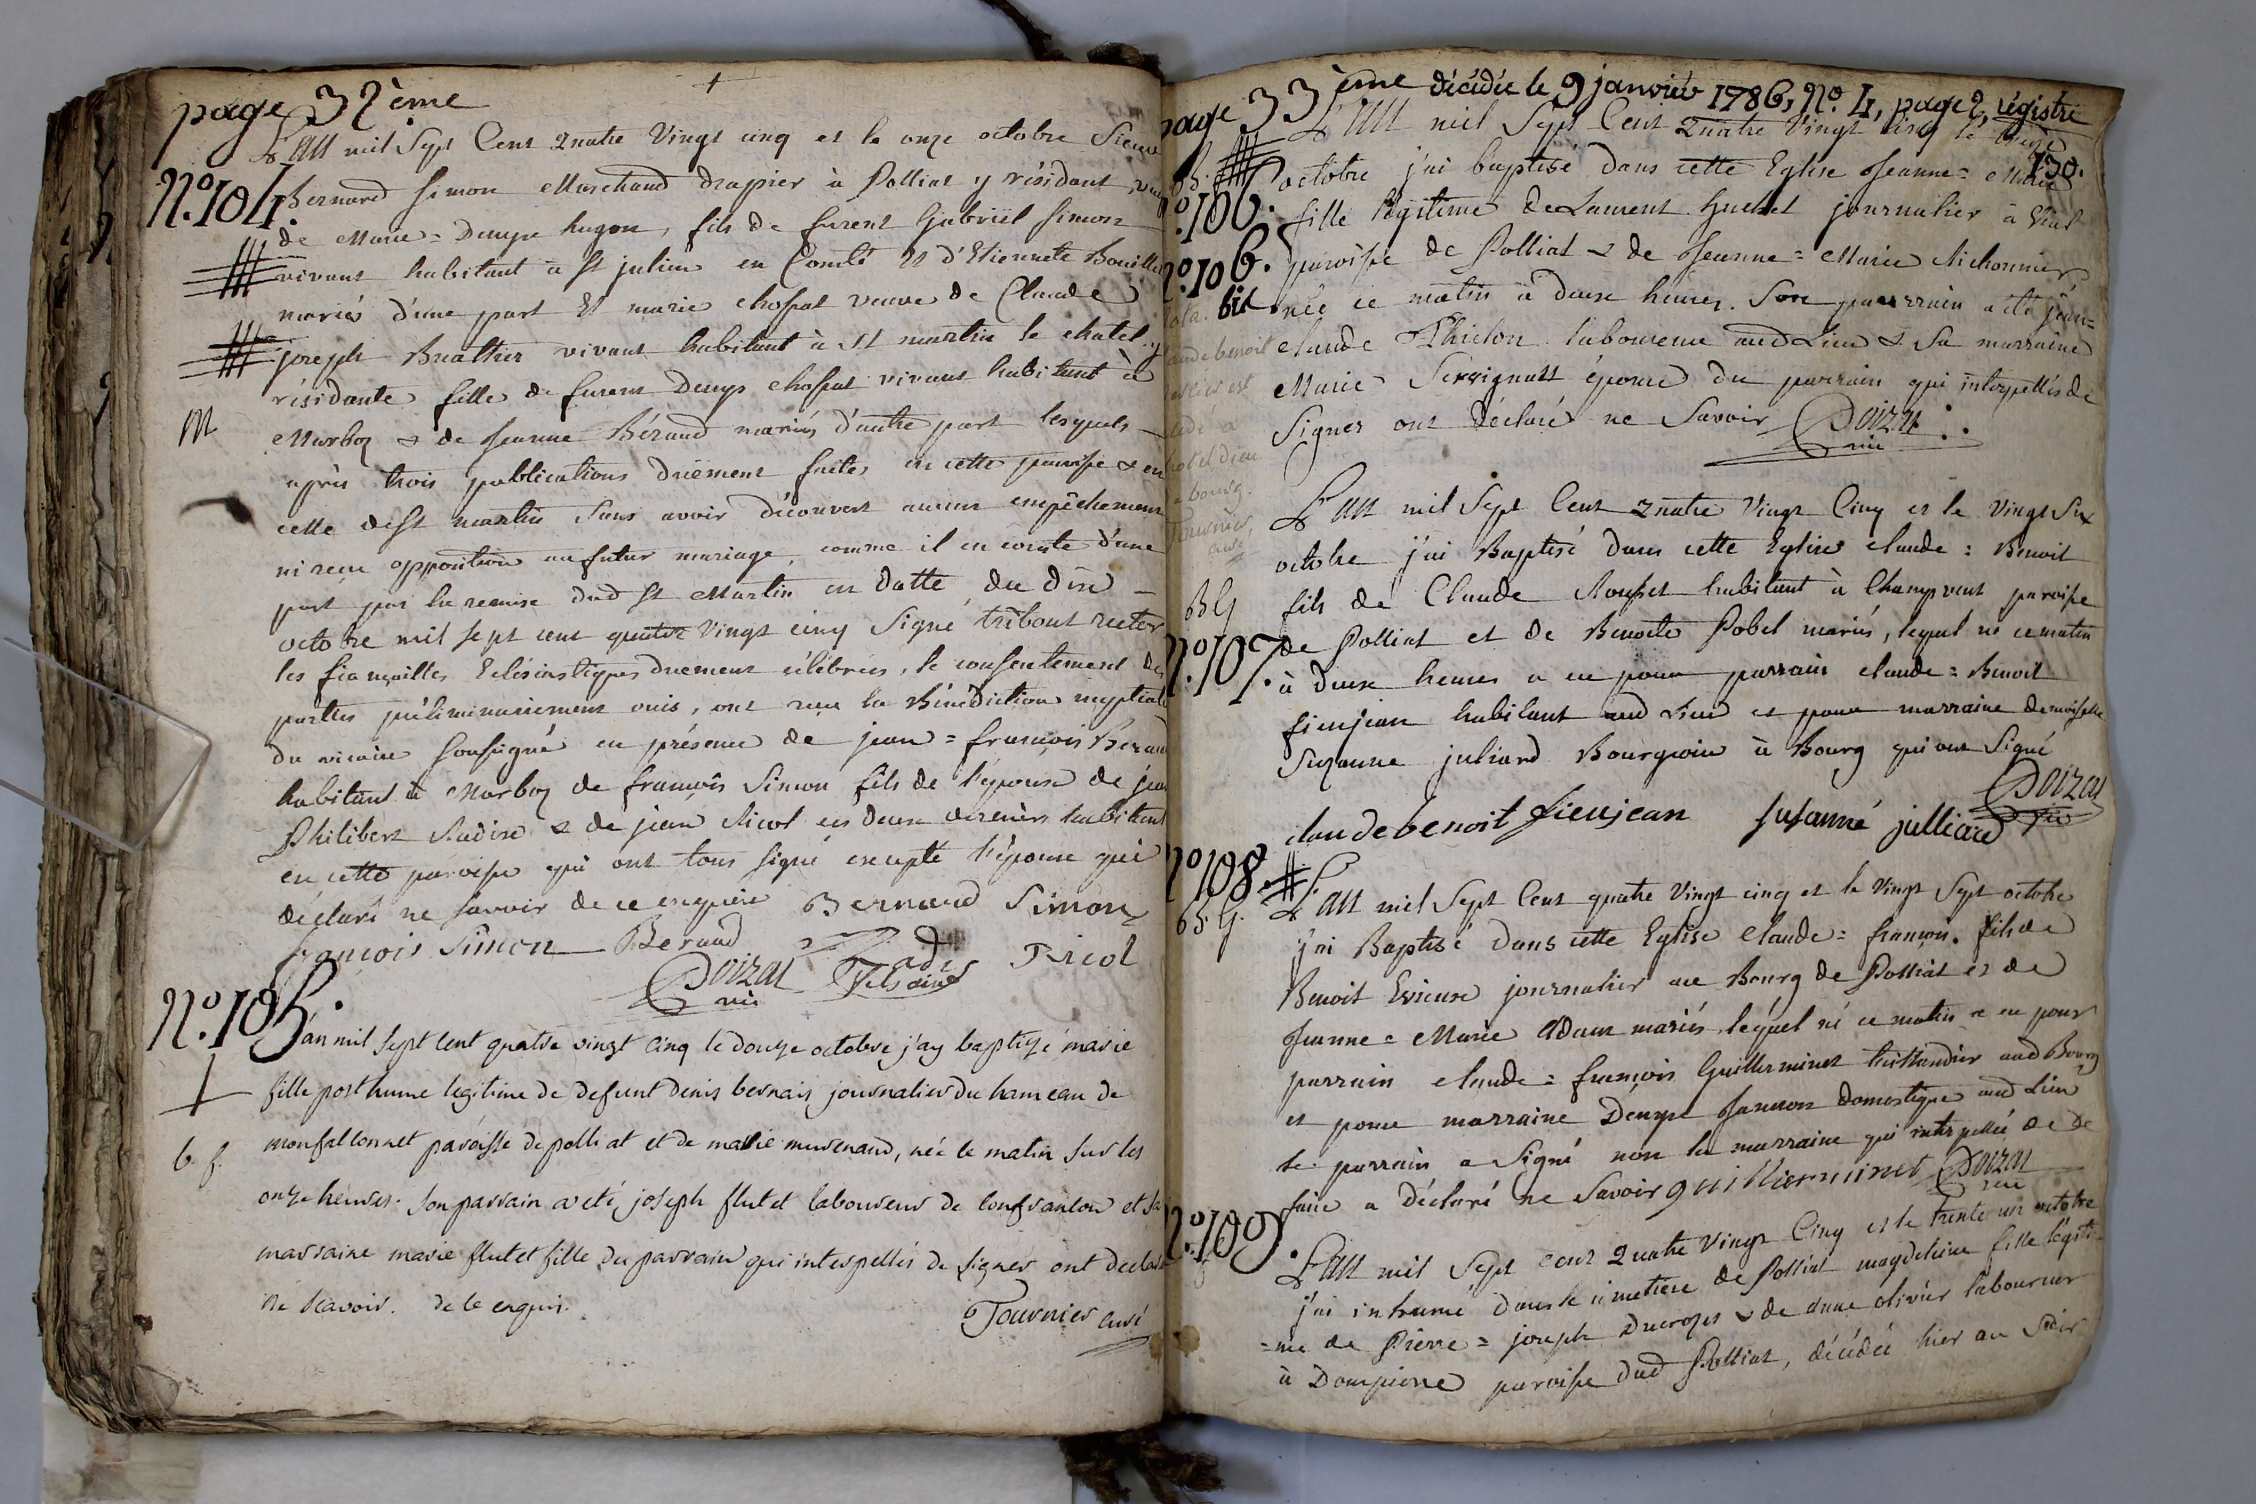 page 32ème
L'an mil Sept Cent quatre Vingt cinq et le onze octobre Sieur
N.º 104. Bernard Simon Marchand drapier à Polliat y résidant, veuf
de Marie = Denyse hugon, fils de furent Gabriël Simon
vivant habitant à St julien en Comté et d'Etiennete Bouillet
mariés d'une part Et marie chossat veuve de Claude
joseph Buathier vivant habitant à St martin le chatel y
résidante fille de furent Denys chossat vivant habitant à
M
Marboz & de jeanne Béraud mariés d'autre part lesquels
après trois publications düement faites en cette paroisse & en
celle de St martin Sans avoir découvert aucun empêchement
ni reçu opposition au futur mariage, comme il en conste d'une
part par la remise dud St Martin en datte du dix
octobre mil sept cent quatre vingt cinq Signé tribout recter
les fiançailles Eclésiastiques duement célébrées, le consentement des
parties préliminairement ouis, ont reçu la Bénédiction nuptiale
du vicaire Soussigné en présence de jean = françois Beraud
habitant à Marboz de françois Simon fils de l'époux de jean
Philibert Radix & de jean Ricol ces deux derniers habitant
en cette paroisse qui ont tous signé excepté l'épouse qui
déclaré ne savoir de ce enquise Bernard Simon
françois Simon Beraud
Doizat vic Radix Ricol
N.º 105. L'an mil sept cent quatre vingt cinq le douze octobre j'ay baptizé marie
fille posthume legitime de defunt denis bernais journalier du hameau de
b. f. monfallonnet paroisse de polliat et de marie murenaud, née ce matin sur les
onze heures. Son parrain a eté joseph flutet laboureur de confranton et sa
marraine marie flutet fille du parrain qui interpellés de signer ont declaré
ne scavoir. de ce enquis.
Tournier curé
page 33ème décédée le 9 janvier 1786, Nº. 4, page 2, régistre
130.
L'an mil Sept Cent Quatre Vingt cinq le
octobre j'ai baptisé dans cette Eglise Jeanne = Marie
N.º 106. fille légitime de Laurent Guehet journalier à Viat
N.º 106. paroisse de Polliat & de Jeanne = Marie Michonnier
bis née ce matin à deux heures. Son parrain a été jean =
claude Philon laboureur aud Lieu & Sa marraine
Marie épouse du parrain qui interpellés de
Signer ont déclaré ne Savoir Doizat vic
claude benoit
est
a
hotel dieu
bourg.
Tournier
curé
L'an mil Sept Cent quatre Vingt Cinq et le Vingt Six
octobre j'ai Baptisé dans cette Eglise claude = Benoit
B G fils de Claude Rousset habitant à Champvent paroisse
N.º 107. de Polliat et de Benoite Pobel mariés, lequel né ce matin
à deux heures a eu pour parrain claude = Benoit
fieujean habitant aud Lieu et pour marraine demoiselle
Suzanne juliard Bourgeoise à Bourg qui ont Signé
Doizat vic
claude benoit fieujean susanne julliard
N.º 108. L'an mil Sept Cent quatre Vingt cinq et le Vingt Sept octobre
B. G. j'ai Baptisé dans cette Eglise Claude = françois. fils de
Benoit Evieux journalier au Bourg de Polliat et de
Jeanne = Marie Adam mariés, lequel né ce matin a eu pour
parrain claude = françois Guillerminet tisserandier aud Bourg
et pour marraine Denyse Jannon domestique aud Lieu
le parrain a Signé non la marraine qui interpellée de le
faire a déclaré ne Savoir guillierminet Doizat vic
N.º 109. L'an mil Sept cent Quatre Vingt Cinq et le trente un octobre
j'ai inhumé dans le cimetiere de Polliat magdeleine fille légiti=
=me de Pierre = joseph Ducrozes & de anne olivier laboureur
à Dompierre paroisse dud Polliat, décédée hier au Soir